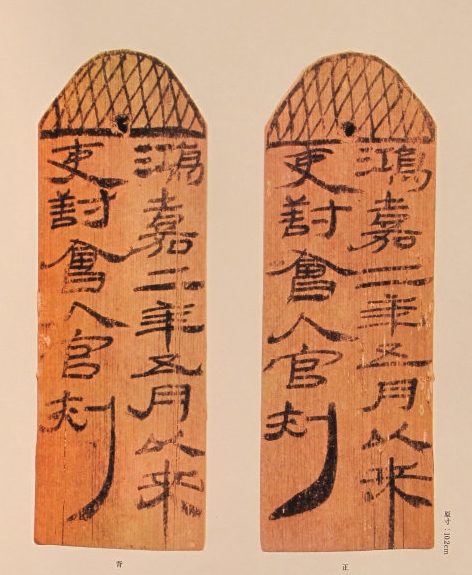 鴻嘉二年五月以來
吏對會入官刺
正
鴻嘉二年五月以來
吏對會入官刺
背